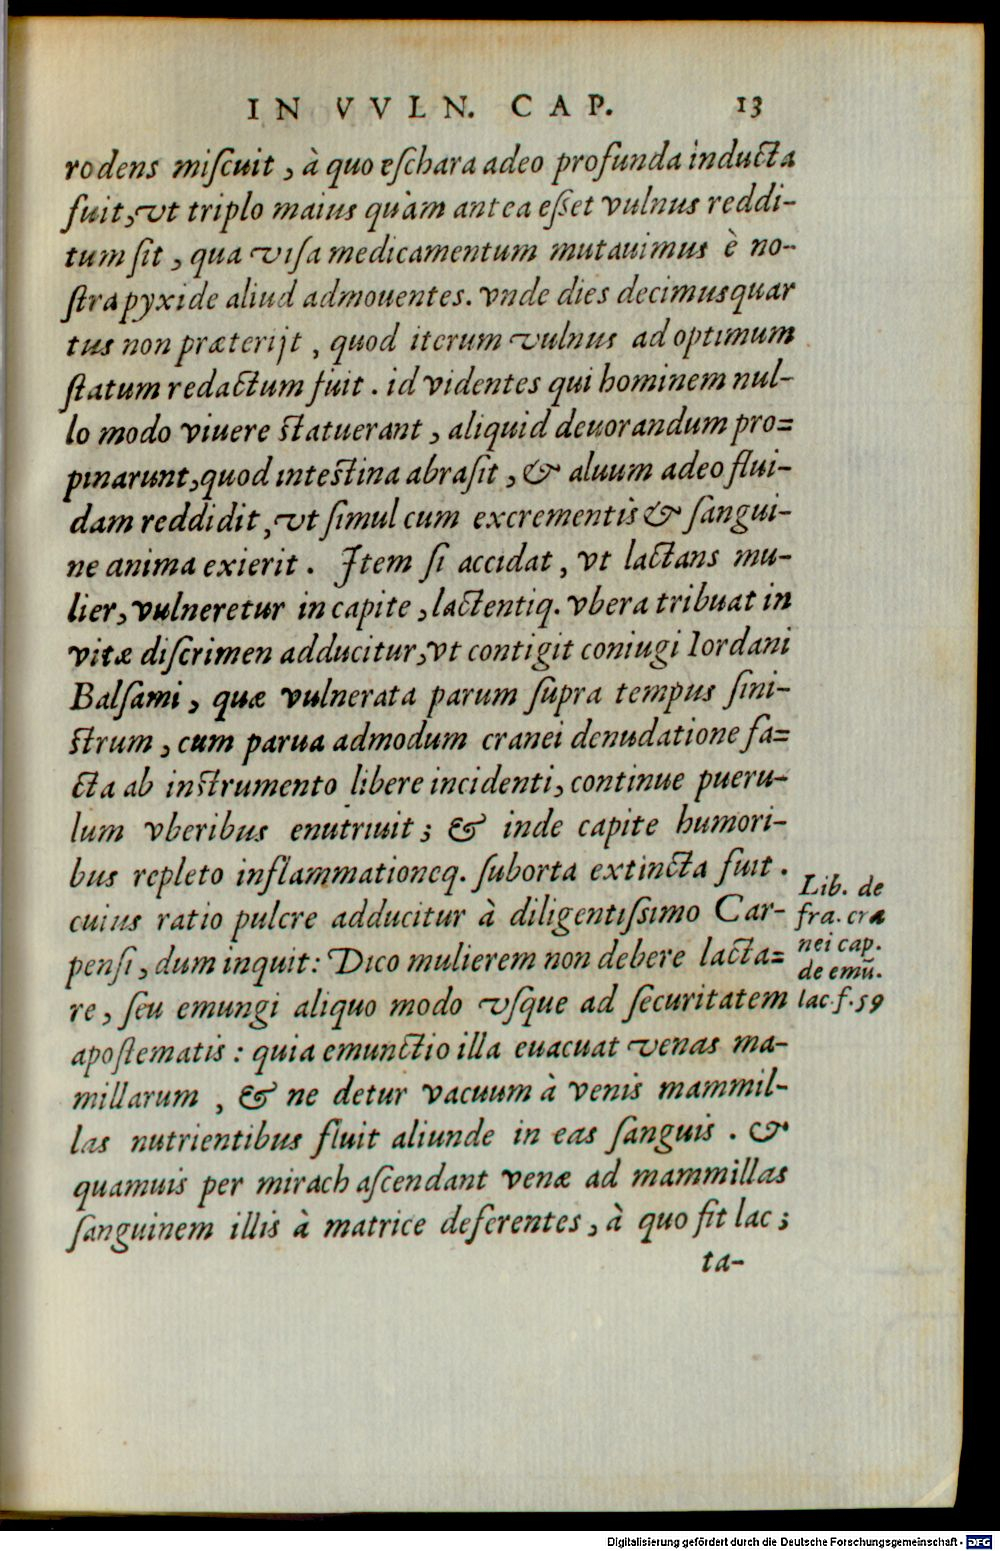 IN VVLN. CAP. 13
rodens miſcuit, à quo eſchara adeo profunda inducta
fuit, vt triplo maius quàm antea eſſet vulnus reddi-
tum ſit, qua viſa medicamentum mutauimus è no-
ſtra pyxide aliud admouentes. vnde dies decimusquar
tus non præterijt, quod iterum vulnus ad optimum
ſtatum redactum fuit. id videntes qui hominem nul-
lo modo viuere ſtatuerant, aliquid deuorandum pro=
pinarunt, quod inteſtina abraſit, & aluum adeo flui-
dam reddidit, vt ſimul cum excrementis & ſangui-
ne anima exierit. Item ſi accidat, vt lactans mu-
lier, vulneretur in capite, lactentiq. vbera tribuat in
vitæ diſcrimen adducitur, vt contigit coniugi Iordani
Balſami, quæ vulnerata parum ſupra tempus ſini-
ſtrum, cum parua admodum cranei denudatione fa=
cta ab inſtrumento libere incidenti, continue pueru-
lum vberibus enutriuit; & inde capite humori-
bus repleto inflammationeq. ſuborta extincta fuit.
cuius ratio pulcre adducitur à diligentiſſimo Car-
penſi, dum inquit: Dico mulierem non debere lacta=
re, ſeu emungi aliquo modo vſque ad ſecuritatem
apoſtematis: quia emunctio illa euacuat venas ma-
millarum, & ne detur vacuum à venis mammil-
las nutrientibus fluit aliunde in eas ſanguis. &
quamuis per mirach aſcendant venæ ad mammillas
ſanguinem illis à matrice deferentes, à quo fit lac;
ta-
Lib. de
fra. cra
nei cap.
de emū.
lac. f. 59
Digitalisierung gefördert durch die Deutsche Forschungsgemeinschaft - DFG